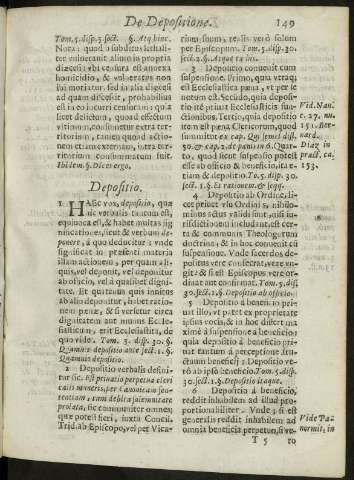 De Depositione. 149
Tom. 5. disp. 3. sect. 1. §. Atq; hinc.
Nota: quod si subditus lethali-
ter vulneravit alium in propria
diœcesi ubi censura est annexa
homicidio, & vulneratus non
ibi moriatur, sed in alia diœcesi
ad quam discessit, probabilius
est illum non incurrere
licet delictum, quoad effectum
ultimum, consumetur extra ter-
ritorium, tamen quoad actio-
nem etiam externam, intra ter-
ritorium consummatum fuit.
Ibidem §. Dices ergo.
Depositio.
1 HÆC vox, depositio, quæ
ex verbalis nomen est,
equivoca est, & habet multas sig-
nificationes, sicut & verbum de-
ponere, à quo deducitur: unde
significat in præsenti materia
illam actionem, per quam ali-
quis, vel deponit, vel deponitur
ab officio, vel à quasibet digni-
tate. Et quatenus quis invitus
ab alio deponitur, habet ratio-
nem pœnæ, & si versetur circa
dignitatem aut munus Eccle-
siasticum, erit Ecclesiastica, de
quo vide. Tom. 5. disp. 30. §.
Quamvis depositio ante sect. 1. §.
Quamvis depositio.
2 Depositio verbalis defini-
tur sic. Est privatio perpetua cleri
calis muneris, per canonicam sen-
tentiam, cum debita solemnitate
prolata, sic communiter omnes;
quæ potest fieri, juxta Concil.
Trid. ab Episcopo, vel per Vica-
rium suum, realis vero solum
per Episcopum. Tom. 5. disp. 30.
sect. 1. §. Atque ex his.
3 Depositio convenit cum
suspensione. Primo, quia utraq;
est Ecclesiastica pœna, vt per se
notum est. Secundo, quia deposi-
tio est privat Ecclesiasticis fun-
ctionibus. Tertio, quia depositio
non est pœna Clericorum, quod
sumitur ex cap. Qui semel dist.
50. & cap. 2. de pœnis in 6. Quar-
to, quod sicut suspensio potest
esse ab officio & beneficio, ita e-
tiam & depositio To. 5. disp. 30.
sect. 1. §. Et rationem. & seqq.
4 Depositio ab Ordine, li-
cet privet usu Ordinis, nihilo-
minus actus validi sunt, nisi ju-
risdictionem includant, est cer-
ta & communis Theologorum
doctrina, & in hoc convenit cum
suspensione. Vnde sacerdos de-
positus verè consecrat, verè un-
git: & si est Episcopus verè or-
dinat aut confirmat. Tom. 5. disp.
30. sect. 1. §. Depositio ab officio.
5 Depositio à beneficio pri-
vat illo, vt patet ex proprietate
ipsius vocis, & in hoc differt ma-
ximè à suspensione à beneficio;
quia depositio à beneficio pri-
vat tantum à perceptione fru-
ctuum beneficij: Depositio ve-
rò ab ipso beneficio. Tom. 5. disp.
30. sect. 1. §. Depositio itaque.
6 Depositio à beneficio,
reddit inhabilem ad illud pro-
portionabiliter. Vnde; si est
generalis reddit inhabilem ad
omnia beneficia perpetuo, si ve-
Vid. Nau.
c. 27. nu.
151. Ber-
nard.
Diaz in
pract. ca.
153.
Vide Pa-
normit. in
T 5 ro